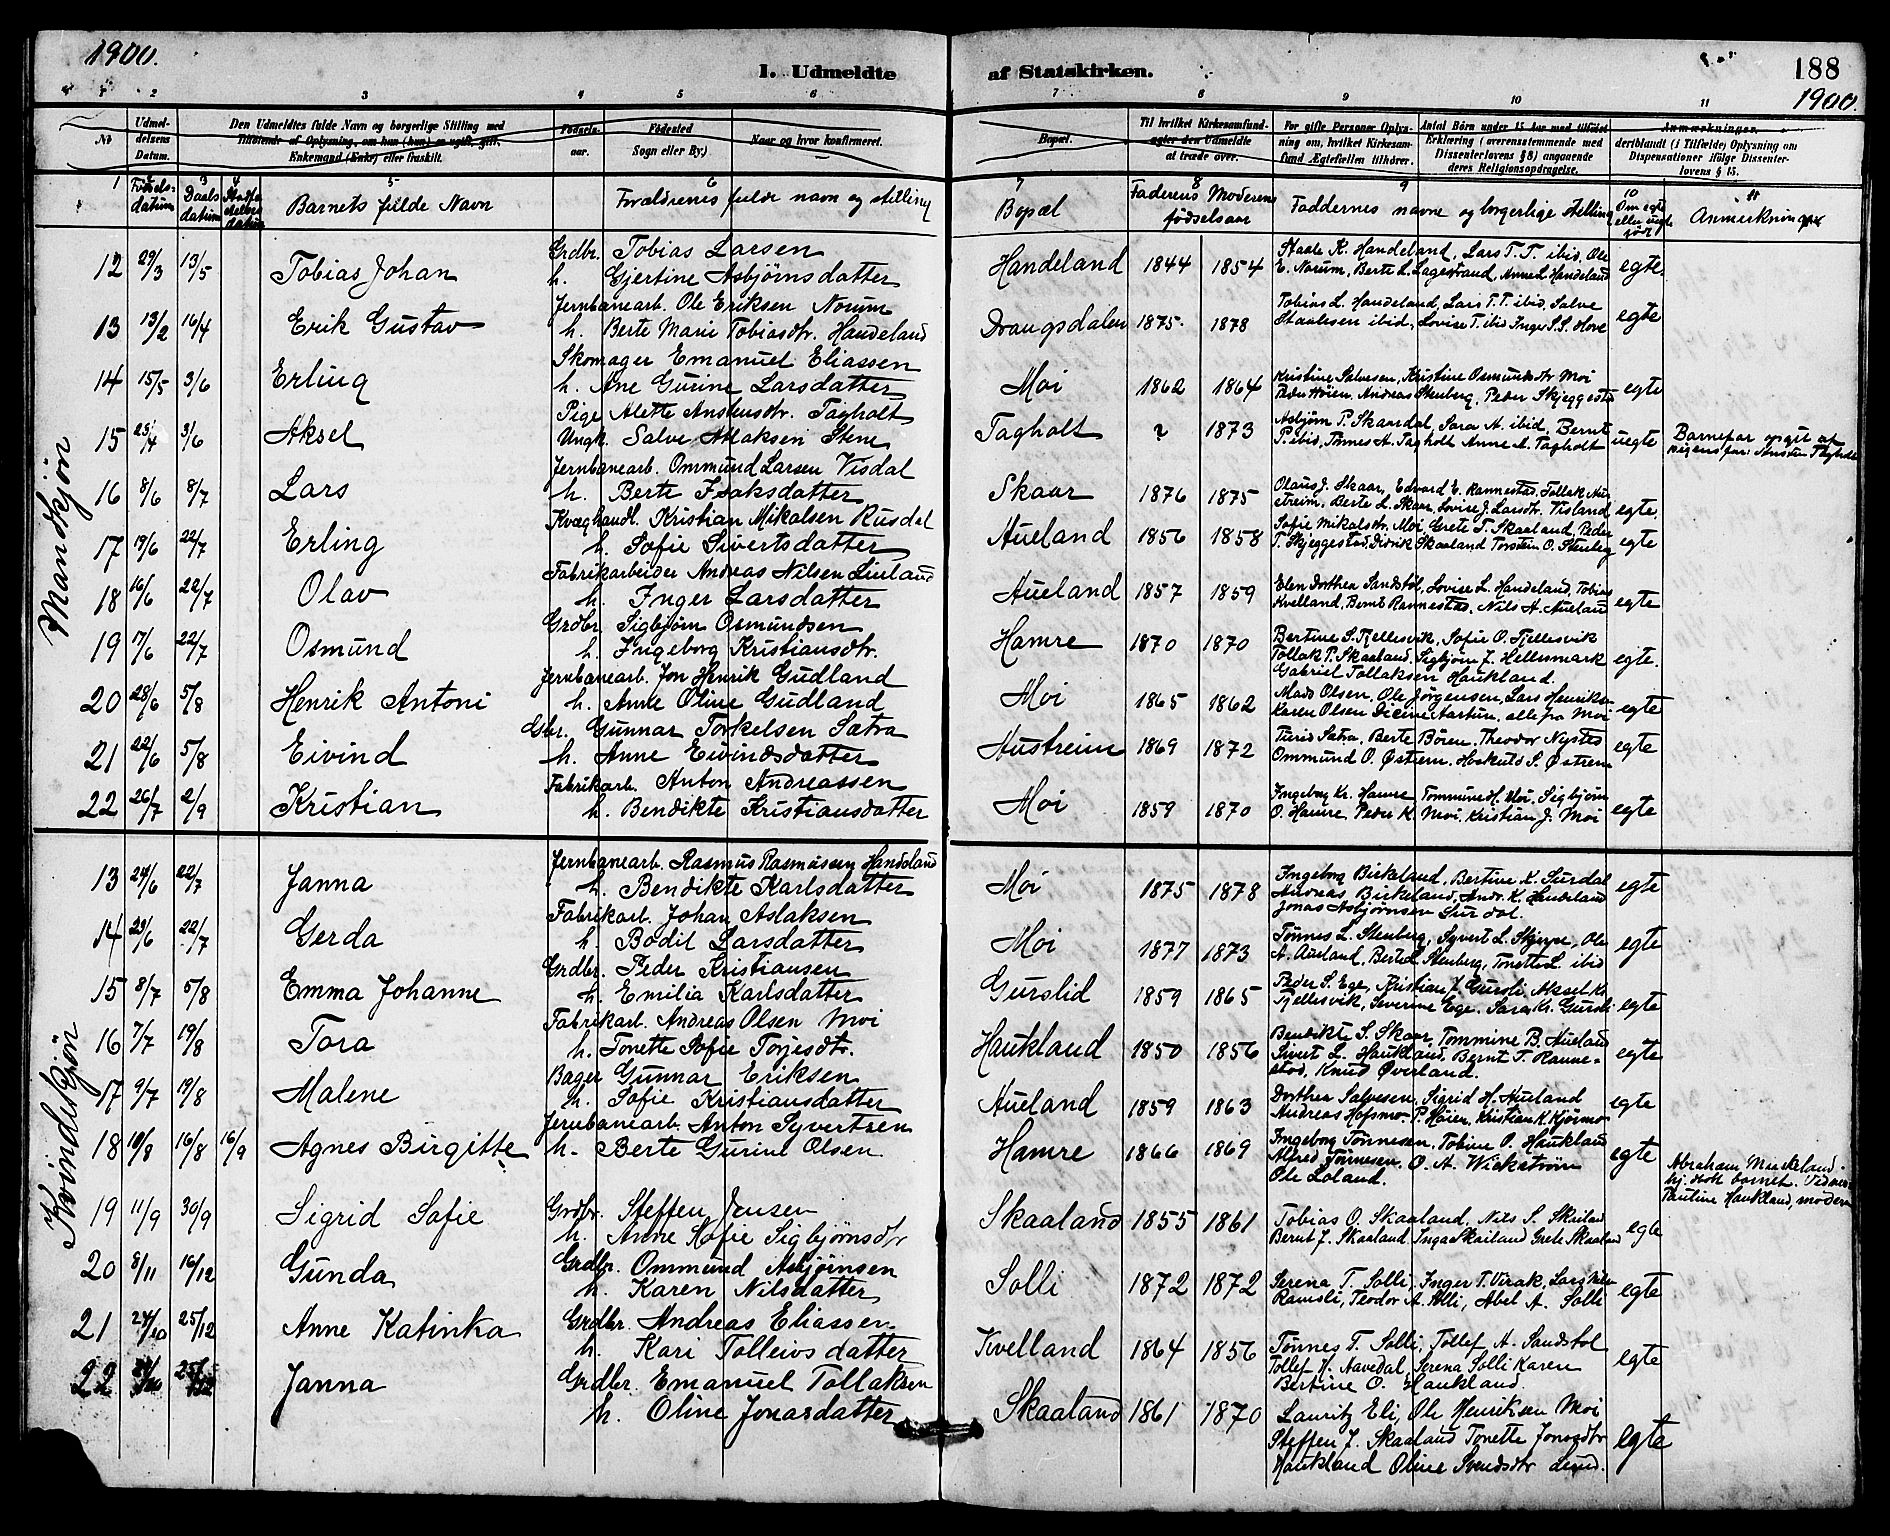 1900.
1. Udmeldte af Statskirken.
188
1900.
1 2 3 4 5 6 7 8 9 10 11
No
Udmeldelsens Datum.
Den Udmeldtes fulde Navn og borgerlige Stilling med Tilføiende af Oplysning, om han (hun) er ugift, gift, Enkemand (Enke) eller fraskilt.
Fødselsaar.
Fødested Sogn eller By.)
Naar og hvor konfirmeret.
Bopæl.
Til hvilket Kirkesamfund agter den Udmeldte at træde over.
For gifte Personer Oplysning om, hvilket Kirkesamfund Ægtefællen tilhører.
Antal Børn under 15 Aar med tilføiet Erklæring (overensstemmende med Dissenterlovens § 8) angaaende deres Religionsopdragelse.
Anmærkninger. deriblandt (i Tilfælde) Oplysning om Dispensationer ifølge Dissenterlovens § 15.
1
2 Fødselsdatum
3 Daabsdatum
4
5 Barnets fulde Navn
6 Forældrenes fulde navn og stilling
7 Bopæl
8 Faderens Moderens fødselsaar
9 Faddernes navne og borgerlige stilling
10 Om egte eller uegte født
11 Anmerkninger
Mandkjøn
12 29/3 13/5 Tobias Johan Grdbr. Tobias Larsen
h. Gjertine Asbjørnsdatter Handeland 1844 1854 Staale K. Handeland, Lars T. T. ibid, Ole
E. Norum, Berte L. Lagestrand, Anne L. Handeland egte
13 13/2 16/4 Erik Gustav Jernbanearb. Ole Eriksen Norum
h. Berte Marie Tobiasdtr. Handeland Draugsdalen 1875. 1878 Tobias L. Handeland, Lars T. T. ibid, Salve
Staalesen ibid, Lovise T. ibid Inger S. S. Hove egte
14 15/5 3/6 Erling Skomager Emanuel Eliassen
h. Ane Gurine Larsdatter Moi 1862 1864 Kristine Salvesen, Kristine Osmundsdtr Moi
Peder Høien, Andreas Stenberg, Peder Skjeggestad egte
15 3/6 Aksel Pige Alette Anstensdtr. Tagholt
Ungk. Salve Aslaksen Stene Tagholt ? 1873 Asbjørn P. Skaardal, Sara A. ibid, Bernt
P. ibid, Tønnes A. Tagholt Anne A. Tagholt uegte Barnefar opgit af
pigens far: Ansten Tagholt
16 8/6 8/7 Lars Jernbanearb. Ommund Larsen Visdal
h. Berte Isaksdatter Skaar 1876 1875 Olaus J. Skaar, Edvard E. Rannestad, Tollak Austreim, Berte L. Skaar, Lovise J. Larsdtr. Visland egte.
17 19/6 22/7 Erling Kvæghandl. Kristian Mikalsen Rusdal
h. Sofie Sivertsdatter Aueland 1856 1858 Sofie Mikalsdtr. Moi, Grete T. Skaaland, Peder
T. Skjeggestad, Didrik Skaaland Torstein O. Stenberg egte
18 16/6 22/7 Olav Fabrikarbeider Andreas Nilsen Liuland
h. Inger Larsdatter Aueland 1857 1859 Elen Dorthea Sandstøl, Lovise L. Handeland, Tobias
Kvelland, Bernt Rannestad, Nils A. Aueland egte
19 17/6 22/7 Osmund Grdbr. Sigbjørn Osmundsen
h. Ingeborg Kristiansdtr. Hamre 1870 1870 Bertine S. Fjellesvik, Sofie O. Fjellesvik
Tollak P. Skaaland, Sigbjørn J. Hellermark
Gabriel Tollaksen Haukland. egte.
20 28/6 5/8 Henrik Antoni Jernbanearb. Jon Henrik Gudland
h. Anne Oline Gudland Moi 1865 1862 Mads Olsen, Ole Jørgensen, Lars Henriksen
Karen Olsen alle fra Moi egte
21 22/6 5/8 Eivind Gbr. Gunnar Torkelsen Satra
h. Anne Eivindsdatter Austreim 1869 1872 Satra, Berte Bøen, Theodor Nysted
Ommund O. Østrem, Hoskuld S. Østrem egte
22 26/7 2/9 Kristian Fabrikarb. Anton Andreassen
h. Bendikte Kristiansdatter Moi 1859 1870 Ingeborg Kr. Hamre Tommine H. Moi, Sigbjørn
O. Hamre, Peder K. Moi, Kristian J. Moi egte
Kvindekjøn
13 24/6 22/7 Janna Jernbanearb. Rasmus Rasmussen Handeland
h. Bendikte Karlsdatter Moi 1875 1878 Ingeborg Birkeland, Bertine K. Surdal
Andreas Birkeland, Andr. K. Handeland
Jonas Asbjørnsen Surdal. egte
14 23/6 22/7 Gerda Fabrikarb. Johan Aslaksen
h. Bodil Larsdatter Moi 1877 1873 Tønnes L. Stenberg, Syvert L. Skjerpe, Ole
A. Aueland, Berte L. Stenberg, Tonette L. ibid egte
15 8/7 5/8 Emma Johanne Grdbr. Peder Kristiansen
h. Emilia Karlsdatter Gurslid 1859 1865 Peder S. Ege, Kristian J. Gursli, Aksel K.
Fjellesvik, Severine Ege. Sara Kr. Gursli egte
16 7/7 19/8 Tora Fabrikarb. Andreas Olsen Moi
h. Tonette Sofie Torjesdtr. Haukland 1850 1856 Bendikte S. Skaar, Tommine B. Aueland
Sivert L. Haukland, Bernt T. Rannestad, Knud Øverland. egte
17 9/7 19/8 Malene Bager Gunnar Eriksen
h. Sofie Kristiansdatter Aueland 1859 1863 Dorthea Salvesen, Sigrid H. Aueland
Andreas Hofsmo. P. Høien, Kristian K. Kjørmo egte
18 10/8 16/8 16/9 Agnes Birgitte Jernbanearb. Anton Syvertsen
h. Berte Gurine Olsen Hamre 1866 1869 Ingeborg Tønnesen, Tobine O. Haukland
Alfred Tønnesen, O. A. Wickstrøm
Ole Loland. egte Abraham
hj. døbt barnet.
Pauline Haukland,
19 11/9 30/9 Sigrid Sofie Grdbr. Steffen Jensen
h. Anne Sofie Sigbjørnsdtr Skaaland 1855 1861 Tobias O. Skaaland, Nils S. Skailand
Bernt J. Skaaland Inga Skailand Grete Skaaland egte
20 8/11 16/12 Gunda Grdbr. Ommund Asbjørnsen
h. Karen Nilsdatter Solli 1872 1872 Serena T. Solli, Inger T. Virak, Lars
Ramsli, Teodor A. Solli, Abel A. Solli egte
21 24/10 25/12 Anne Katinka Grdbr. Andreas Eliassen
h. Kari Tolleivsdatter Kvelland 1864 1856 Tønnes T. Solli, Tollef A. Sandstøl
Tollef H. Aavedal, Serena Solli Karen
Bertine O. Haukland. egte
22 Janna Grdbr. Emanuel Tollaksen
h. Oline Jonasdatter Skaaland 1861 1870 Lauritz Eli, Ole Henriksen Moi
Steffen J. Skaaland Tonette Jonasdtr
Haukland Oline Svendsdtr ibid. egte